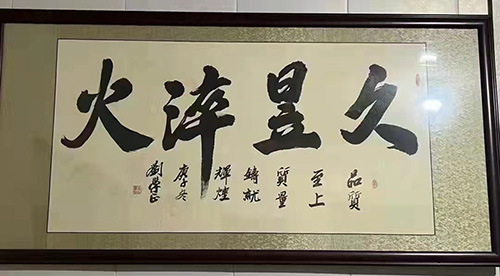 久昱淬火
品質
至上
質量
鑄就
輝煌
庚子冬